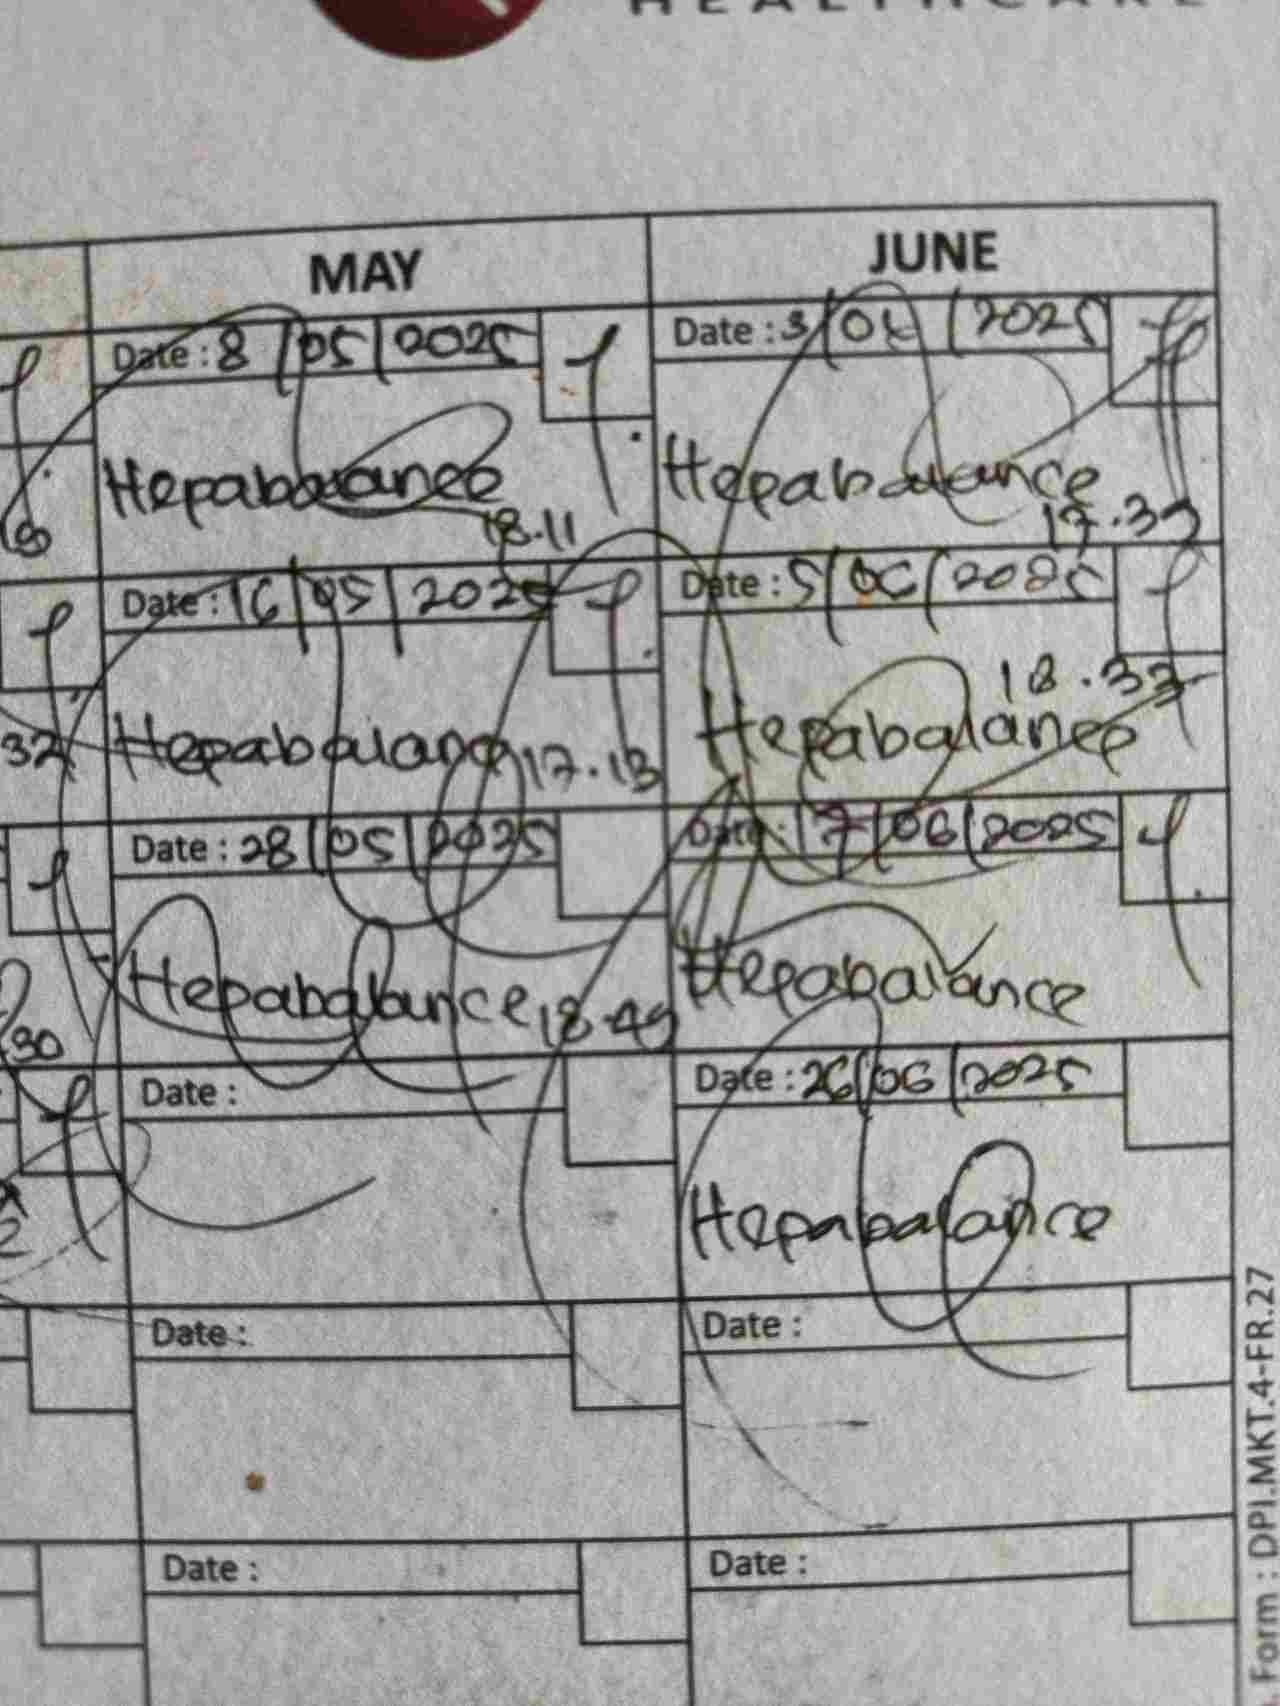 HEALTHCARE
MAY
Date : 8/05/2025
Hepabalance
18.11
Date : 16/05/2025
Hepabalance 17.13
Date : 28/05/2025
Hepabalance 18.49
Date :
Date :
Date :
JUNE
Date : 3/06/2025
Hepabalance
17.33
Date : 5/06/2025
18.33
Hepabalance
Date : 17/06/2025
Hepabalance
Date : 26/06/2025
Hepabalance
Date :
Date :
32
30
Form : DPI.MKT.4-FR.27